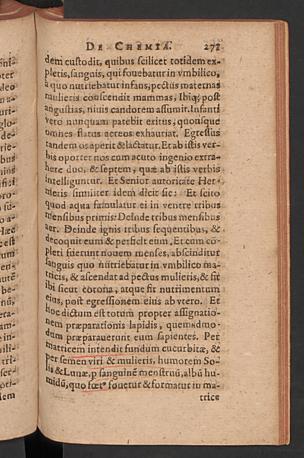 DE CHEMIA. 271
dem custodit, quibus scilicet totidem ex-
pletis, sanguis, qui fouebatur in vmbilico,
à quo nutriebatur infans, pectus maternas
mulieris conscendit mammas, Ibiq; post
angustias, niuis candorem assumit. Infanti
vero nunquam patebit exitus, quousque
omnes flatus aereos exhauriat. Egressus
tandem os aperit & lactatur. Et ab istis ver-
bis oportet nos cum acuto ingenio extra-
here duo, & septem, quæ ab istis verbis
intelliguntur. Et Senior autoritate Her-
metis similiter idem dicit sic: Et scito
quod aqua famulatur ei in ventre tribus
mensibus primis: Deinde tribus mensibus
aer. Deinde ignis tribus sequentibus, &
decoquit eum & perficit eum, Et cum cō-
pleti fuerunt nouem menses, abscinditur
sanguis quo nutriebatur in vmbilico ma-
tricis, & ascendat ad pectus mulieris, & fit
ibi sicut corona, atque fit nutrimentum
eius, post egressionem eius ab vtero. Et
hoc dictum est totum propter assignatio-
nem præparationis lapidis, quemadmo-
dum præparauerunt eum sapientes. Per
matricem intendit fundum cucurbitæ, &
per semen viri & mulieris, humorem So-
lis & Lunæ, p sanguinē menstruū, albū hu-
midū, quo fœt⁹ fouetur & formatur in ma-
trice